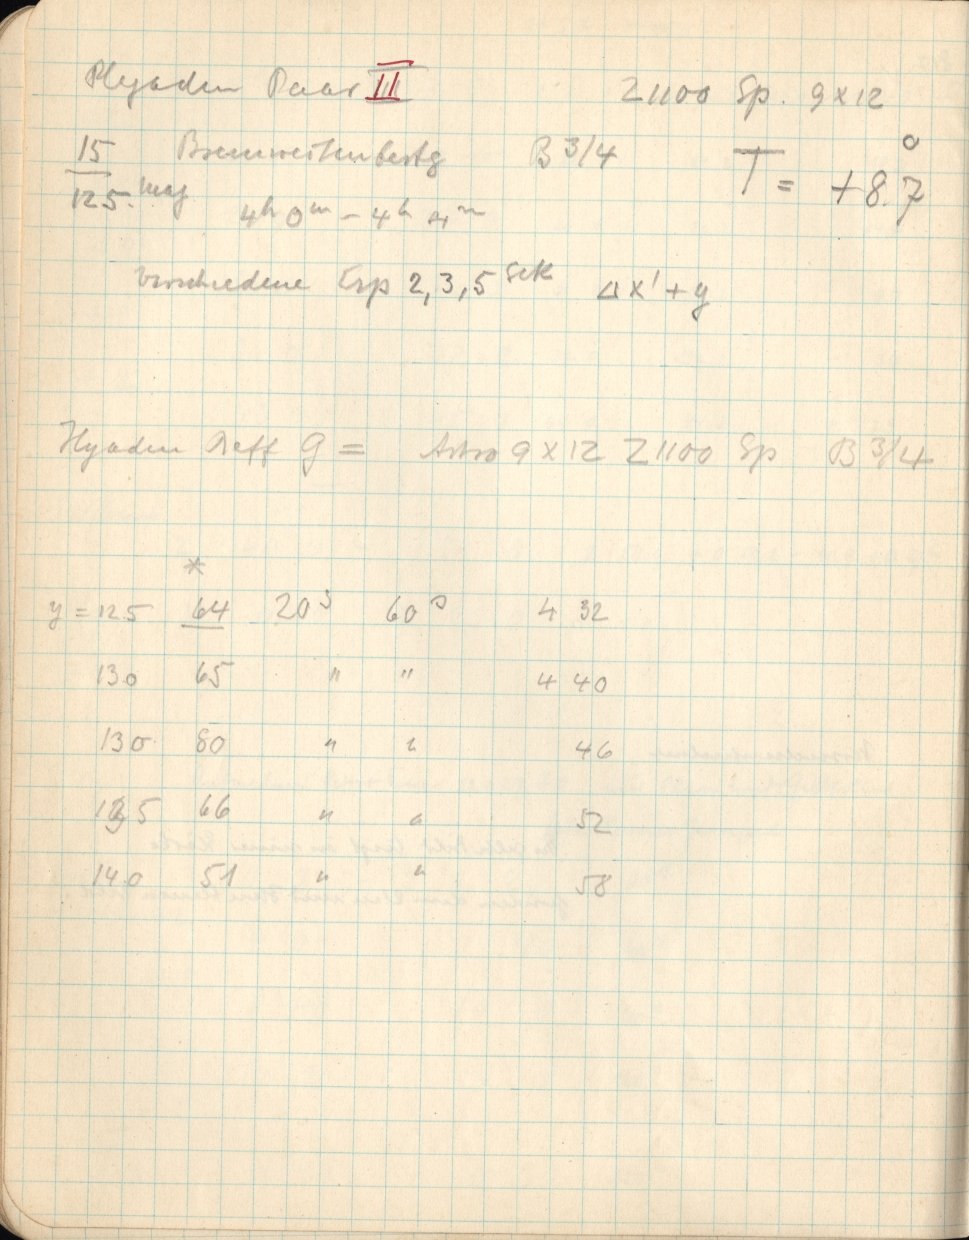 Plejaden Paar III Z1100 Sp. 9x12
15 Brennweitenbestg B 3/4 T = +8.7°
125. mag
4h 0m – 4h 4m
Verschiedene Exp 2, 3, 5 Sek Δx' + y
Hyaden g = Astro 9x12 Z1100 Sp B 3/4
*
y = 125 64 20s 60s 4 32
130 65 " " 4 40
130 80 " " 46
135 66 " " 52
140 51 " " 58